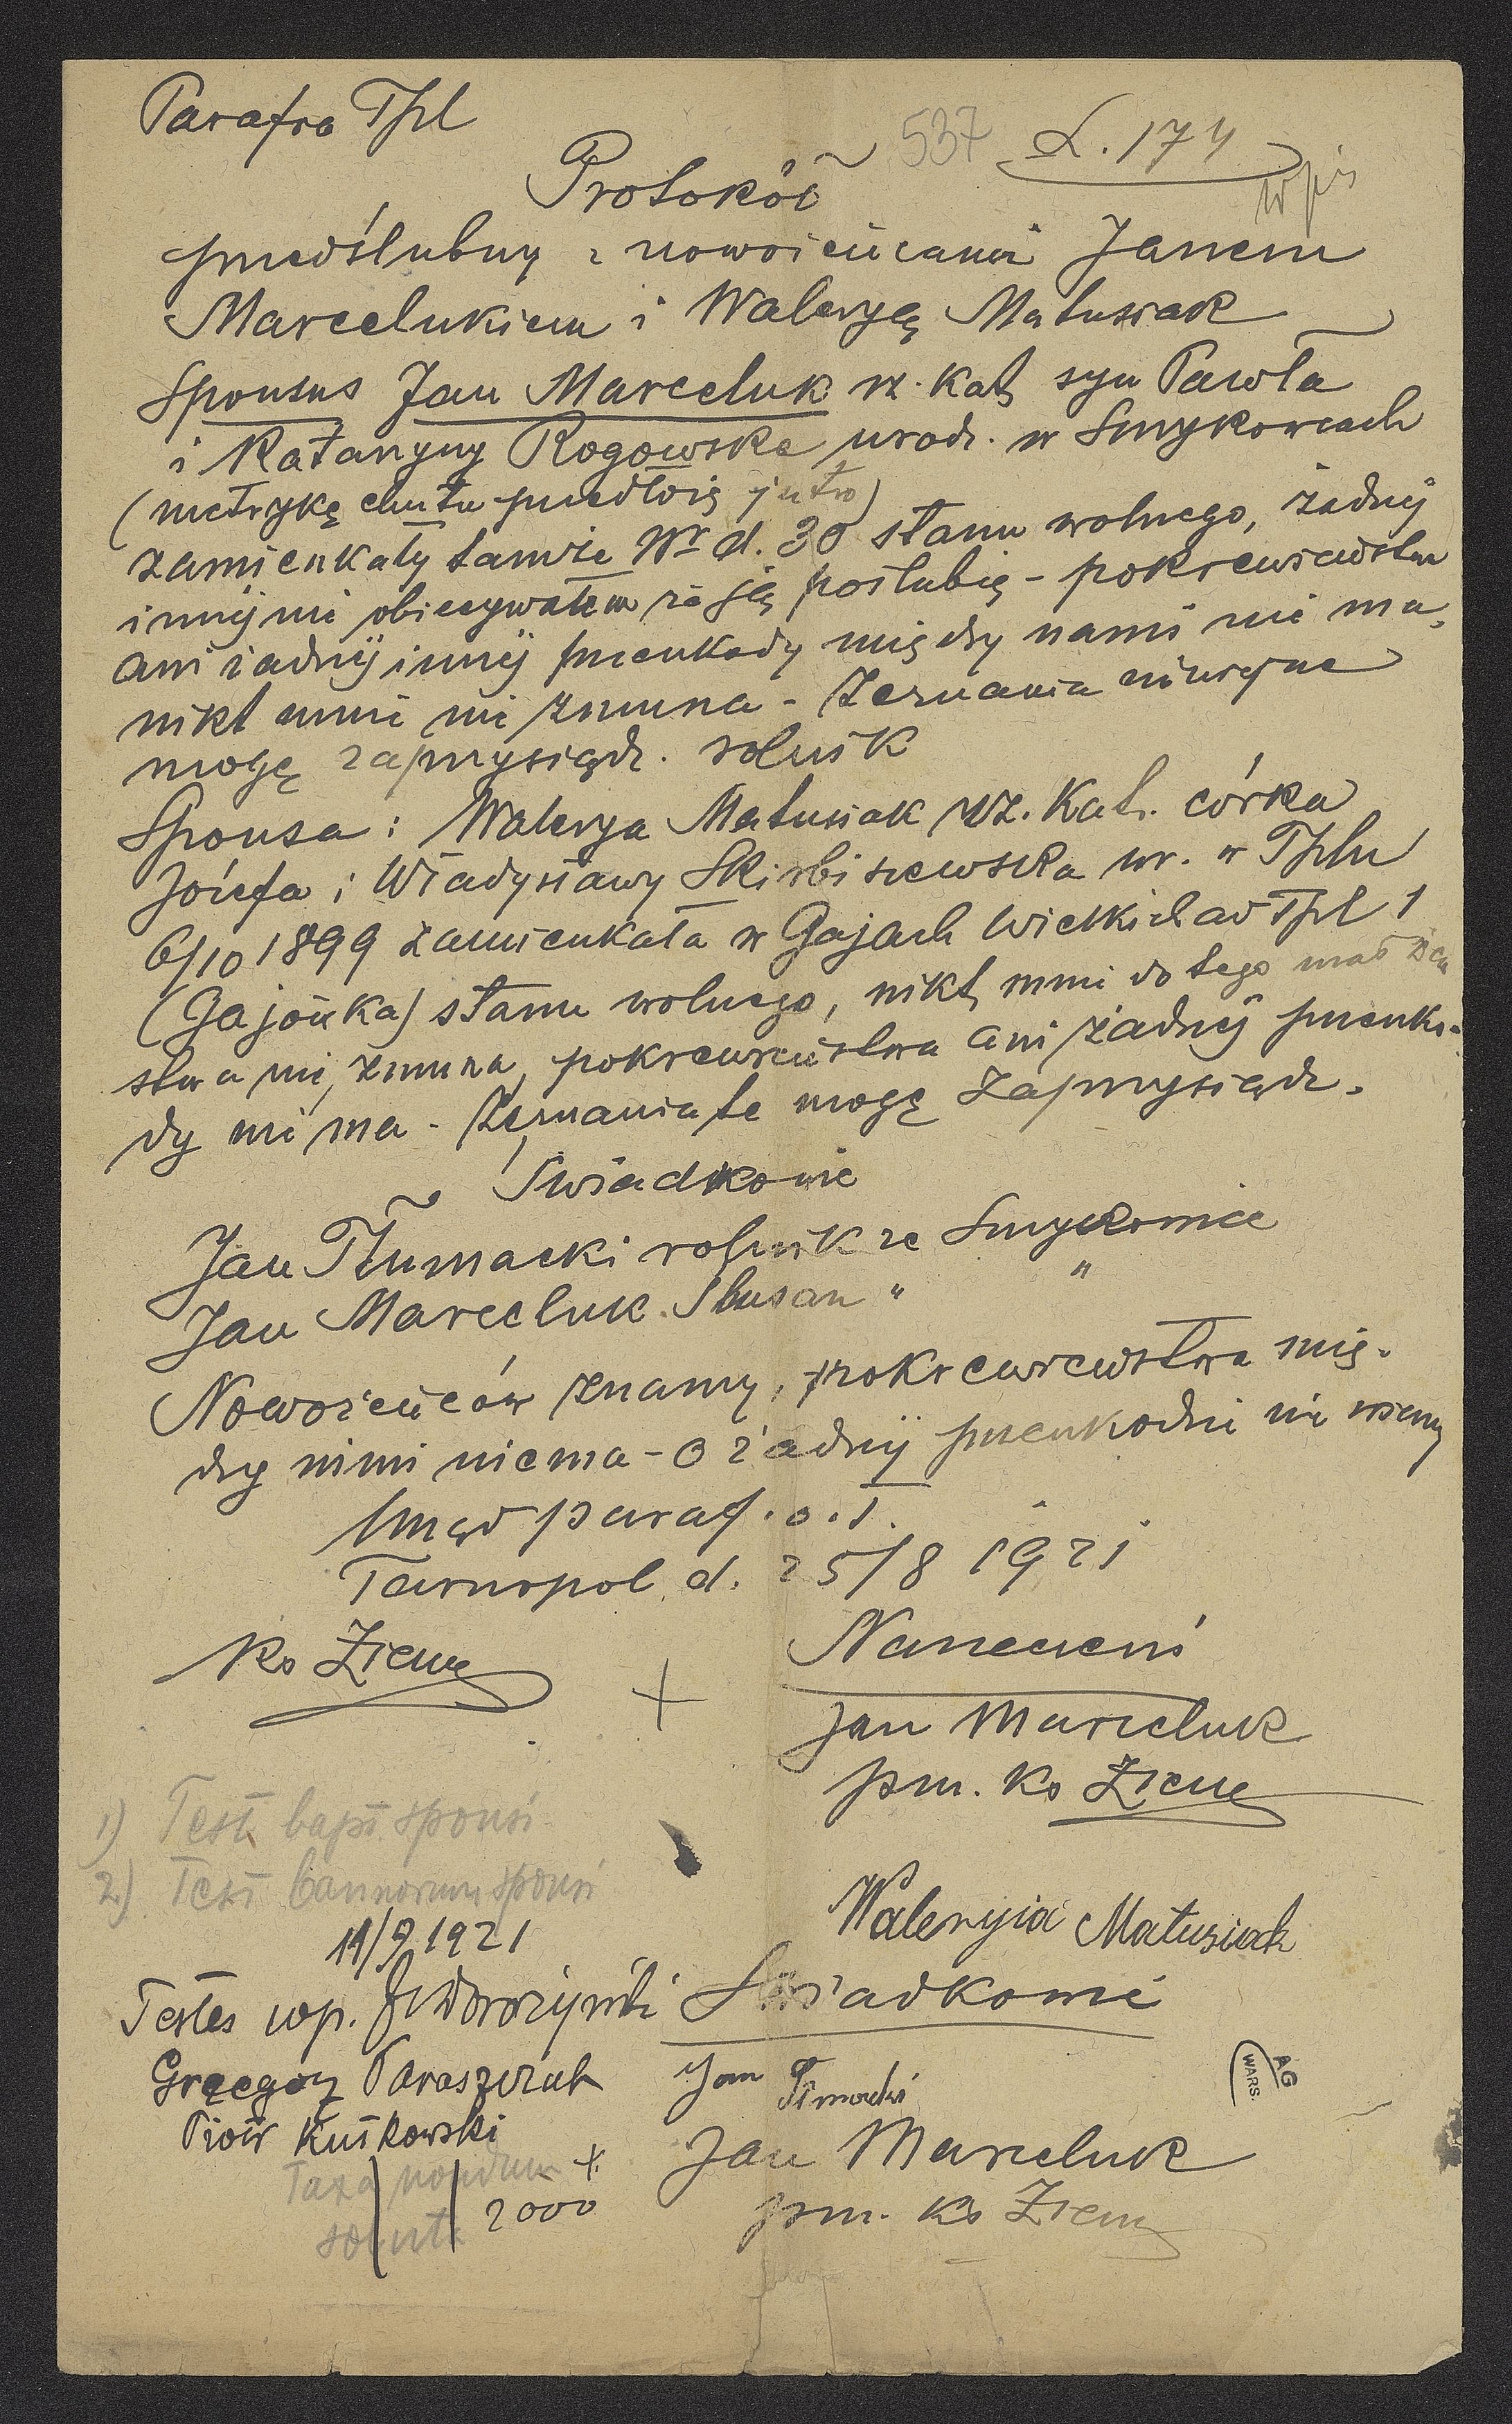 Parafia Tpl
537 L. 174
wpis
Protokół
przedślubny z nowożeńcami Janem
Marcelukiem i Waleryą Matusiak
Sponsus Jan Marceluk rz. kat. syn Pawła
i Katarzyny Rogowska urodz. w Smykowcach
(metrykę chrztu przedłożę jutro)
zamieszkały tamże Nr d. 30 stanu wolnego, żadnej
innej nie obiecywałem że ją poślubię - pokrewieństwa
ani żadnej innej przeszkody między nami nie ma,
nikt mnie nie zmusza - Zeznania niniejsze
mogę zaprzysiądz. rolnik
Sponsa: Walerya Matusiak rz. kat. córka
Józefa i Władysławy Skirbiszewska ur. w Tplu
6/10 1899 zamieszkała w Gajach Wielkich ad Tpl 1
(Gajówka) stanu wolnego, nikt mnie do tego małżeń
stwa nie zmusza, pokrewieństwa ani żadnej przeszko-
dy nie ma - Zeznania te mogę zaprzysiądz.
Świadkowie
Jan Tłumacki rolnik ze Smykowiec
Jan Marceluk ślusarz " "
Nowożeńców znamy, pokrewieństwa mię-
dzy nimi niema - o żadnej przeszkodzie nie wiemy
Urząd paraf. o. ł.
Tarnopol d. 25/8 1921
Ks Ziem
Narzeczeni
+ Jan Marceluk
prz. Ks Ziem
1) Test. bapt. sponsi
2) Test bannorum sponsi
Waleryia Matusiak
11/9 1921
Testes wp.
Świadkowie
Grzegorz Paraszczuk
Jan Tłmacki
Piotr Kuśkowski
+ Jan Marceluk
Taxa nondum
soluta 2000
prz. Ks Ziem
AG
WARS.